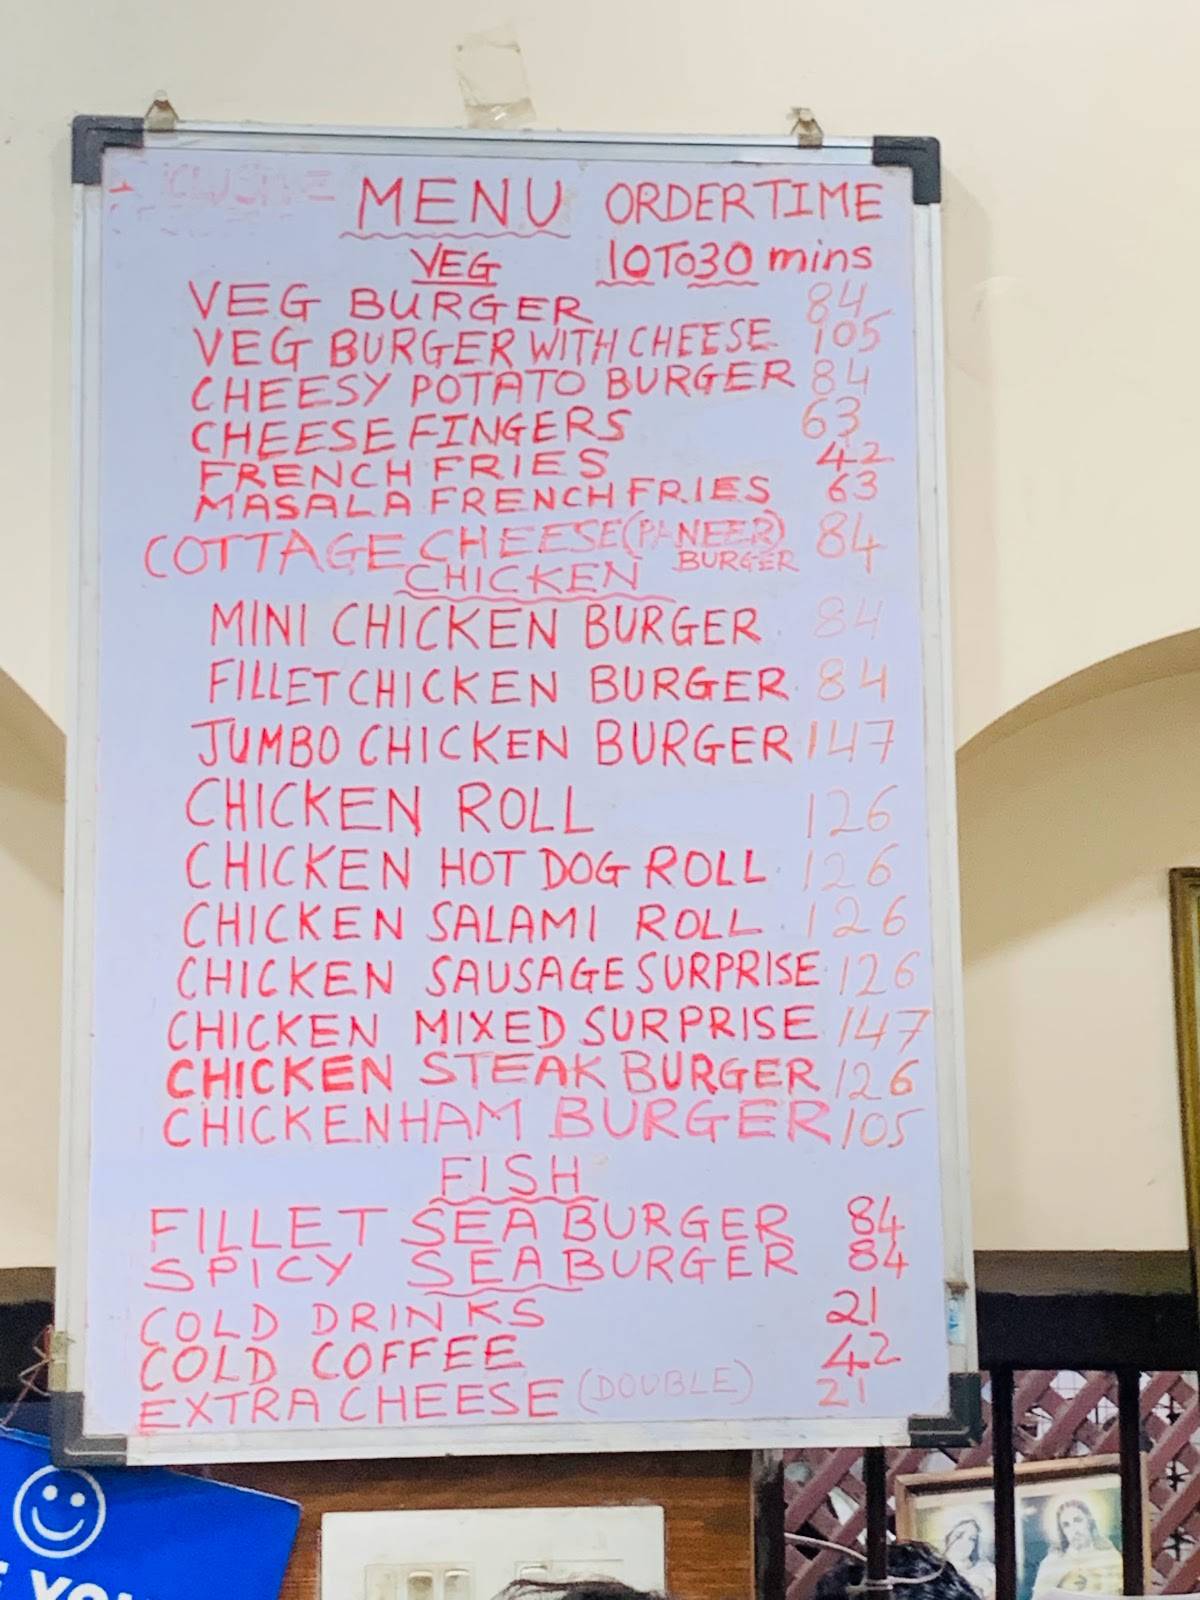 MENU ORDER TIME
VEG 10 TO 30 mins
VEG BURGER 84
VEG BURGER WITH CHEESE 105
CHEESY POTATO BURGER 84
CHEESE FINGERS 63
FRENCH FRIES 42
MASALA FRENCH FRIES 63
COTTAGE CHEESE (PANEER) BURGER 84
CHICKEN
MINI CHICKEN BURGER 84
FILLET CHICKEN BURGER 84
JUMBO CHICKEN BURGER 147
CHICKEN ROLL 126
CHICKEN HOT DOG ROLL 126
CHICKEN SALAMI ROLL 126
CHICKEN SAUSAGE SURPRISE 126
CHICKEN MIXED SURPRISE 147
CHICKEN STEAK BURGER 126
CHICKEN HAM BURGER 105
FISH
FILLET SEA BURGER 84
SPICY SEA BURGER 84
COLD DRINKS 21
COLD COFFEE 42
EXTRA CHEESE (DOUBLE) 21